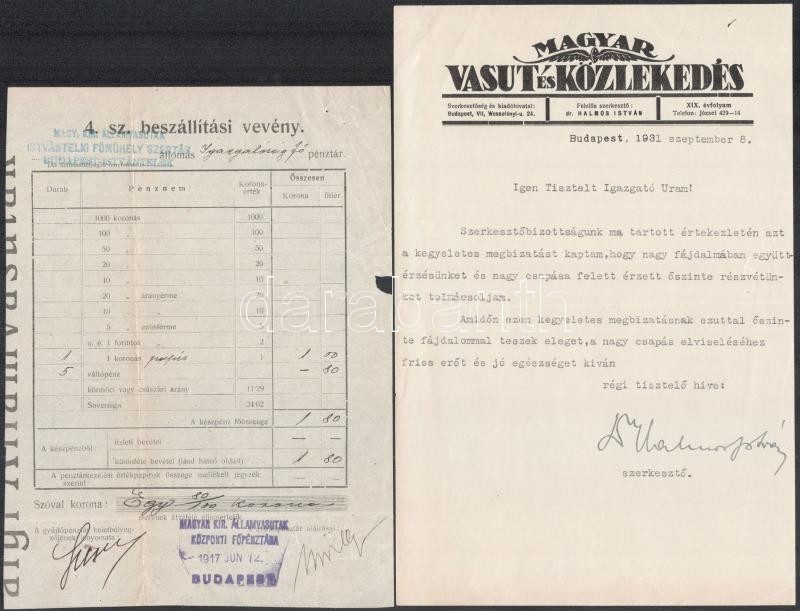 4. sz. beszállítási vevény.
MAGY. KIR. ÁLLAMVASUTAK
ISTVÁNTELKI FŐMŰHELY SZERTÁR
BUDAPEST-ISTVÁNTELEK
állomás Igazgatóság fő pénztár.
Darab Pénznem Korona-érték Összesen
Korona fillér
1000 koronás 1000
100 „ 100
50 „ 50
20 „ 20
10 „ 10
20 „ aranyérme 20
10 „ 10
5 „ ezüstérme 5
o. é. 1 forintos 2
1 1 koronás papír 1 1 00
5 váltópénz — 80
körmöci vagy császári arany 11·29
Sovereign 24·02
A készpénz főösszege 1 80
A készpénzből: üzleti bevétel — —
különféle bevétel (lásd hátsó oldalt) 1 80
A pénztárkezelési értékpapirok összege mellékelt jegyzék szerint — —
Szóval korona: Egy 80/100 korona
A gyűjtőpénztár keletbélyeg-
zőjének lenyomata
MAGYAR KIR. ÁLLAMVASUTAK
KÖZPONTI FŐPÉNZTÁRA
1917 JUN 12.
BUDAPEST
MAGYAR
VASUT és KÖZLEKEDÉS
Szerkesztőség és kiadóhivatal:
Budapest, VII, Wesselényi-u. 24.
Felelős szerkesztő:
dr. HALMOS ISTVÁN
XIX. évfolyam
Telefon: József 429—14
Budapest, 1931 szeptember 8.
Igen Tisztelt Igazgató Uram!
Szerkesztőbizottságunk ma tartott értekezletén azt
a kegyeletes megbizatást kaptam,hogy nagy fájdalmában együtt-
érzésünket és nagy csapása felett érzett őszinte részvétün-
ket tolmácsoljam.
Amidőn ezen kegyeletes megbizatásnak ezuttal őszin-
te fájdalommal teszek eleget,a nagy csapás elviseléséhez
friss erőt és jó egészséget kiván
régi tisztelő hive:
Dr Halmos István
szerkesztő.
darabanth